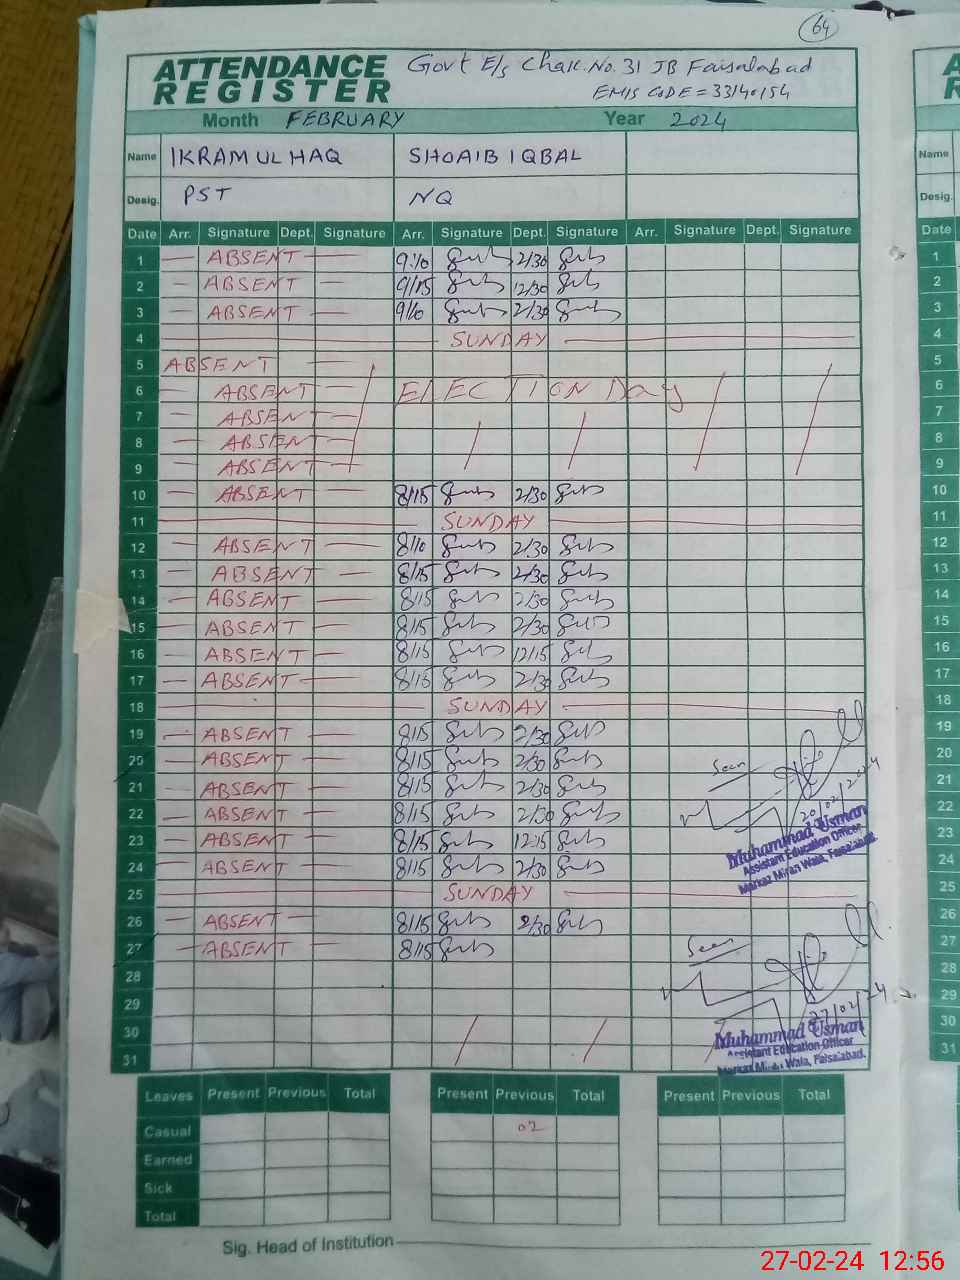 64
ATTENDANCE REGISTER
Govt E/s Chak.No. 31 JB Faisalabad
EMIS CODE = 33140154
Month FEBRUARY Year 2024
Name IKRAM UL HAQ SHOAIB IQBAL
Desig. PST NQ
Date Arr. Signature Dept. Signature Arr. Signature Dept. Signature Arr. Signature Dept. Signature
1 — ABSENT — 9/10 2/30
2 — ABSENT — 9/15 12/30
3 — ABSENT — 9/10 2/30
4 SUNDAY
5 ABSENT —
6 ABSENT — ELECTION Day
7 ABSENT —
8 ABSENT —
9 ABSENT —
10 — ABSENT — 8/15 2/30
11 SUNDAY
12 — ABSENT — 8/10 2/30
13 — ABSENT — 8/15 2/30
14 — ABSENT — 8/15 2/30
15 — ABSENT — 8/15 2/30
16 — ABSENT — 8/15 12/15
17 — ABSENT — 8/15 2/30
18 SUNDAY
19 — ABSENT — 8/15 2/30
20 — ABSENT — 8/15 2/30
21 — ABSENT — 8/15 2/30
22 — ABSENT — 8/15 2/30
23 — ABSENT — 8/15 12:15
24 — ABSENT — 8/15 2/30
25 SUNDAY
26 — ABSENT — 8/15 2/30
27 — ABSENT — 8/15
28
29
30
31
Seen
20/02/2024
Muhammad Usman
Assistant Education Officer
Markaz Miran Wala, Faisalabad.
Seen
27/02/24
Muhammad Usman
Assistant Education Officer
Markaz Miran Wala, Faisalabad.
Leaves Present Previous Total Present Previous Total Present Previous Total
Casual 02
Earned
Sick
Total
Sig. Head of Institution
Name
Desig.
Date
1
2
3
4
5
6
7
8
9
10
11
12
13
14
15
16
17
18
19
20
21
22
23
24
25
26
27
28
29
30
31
27-02-24 12:56